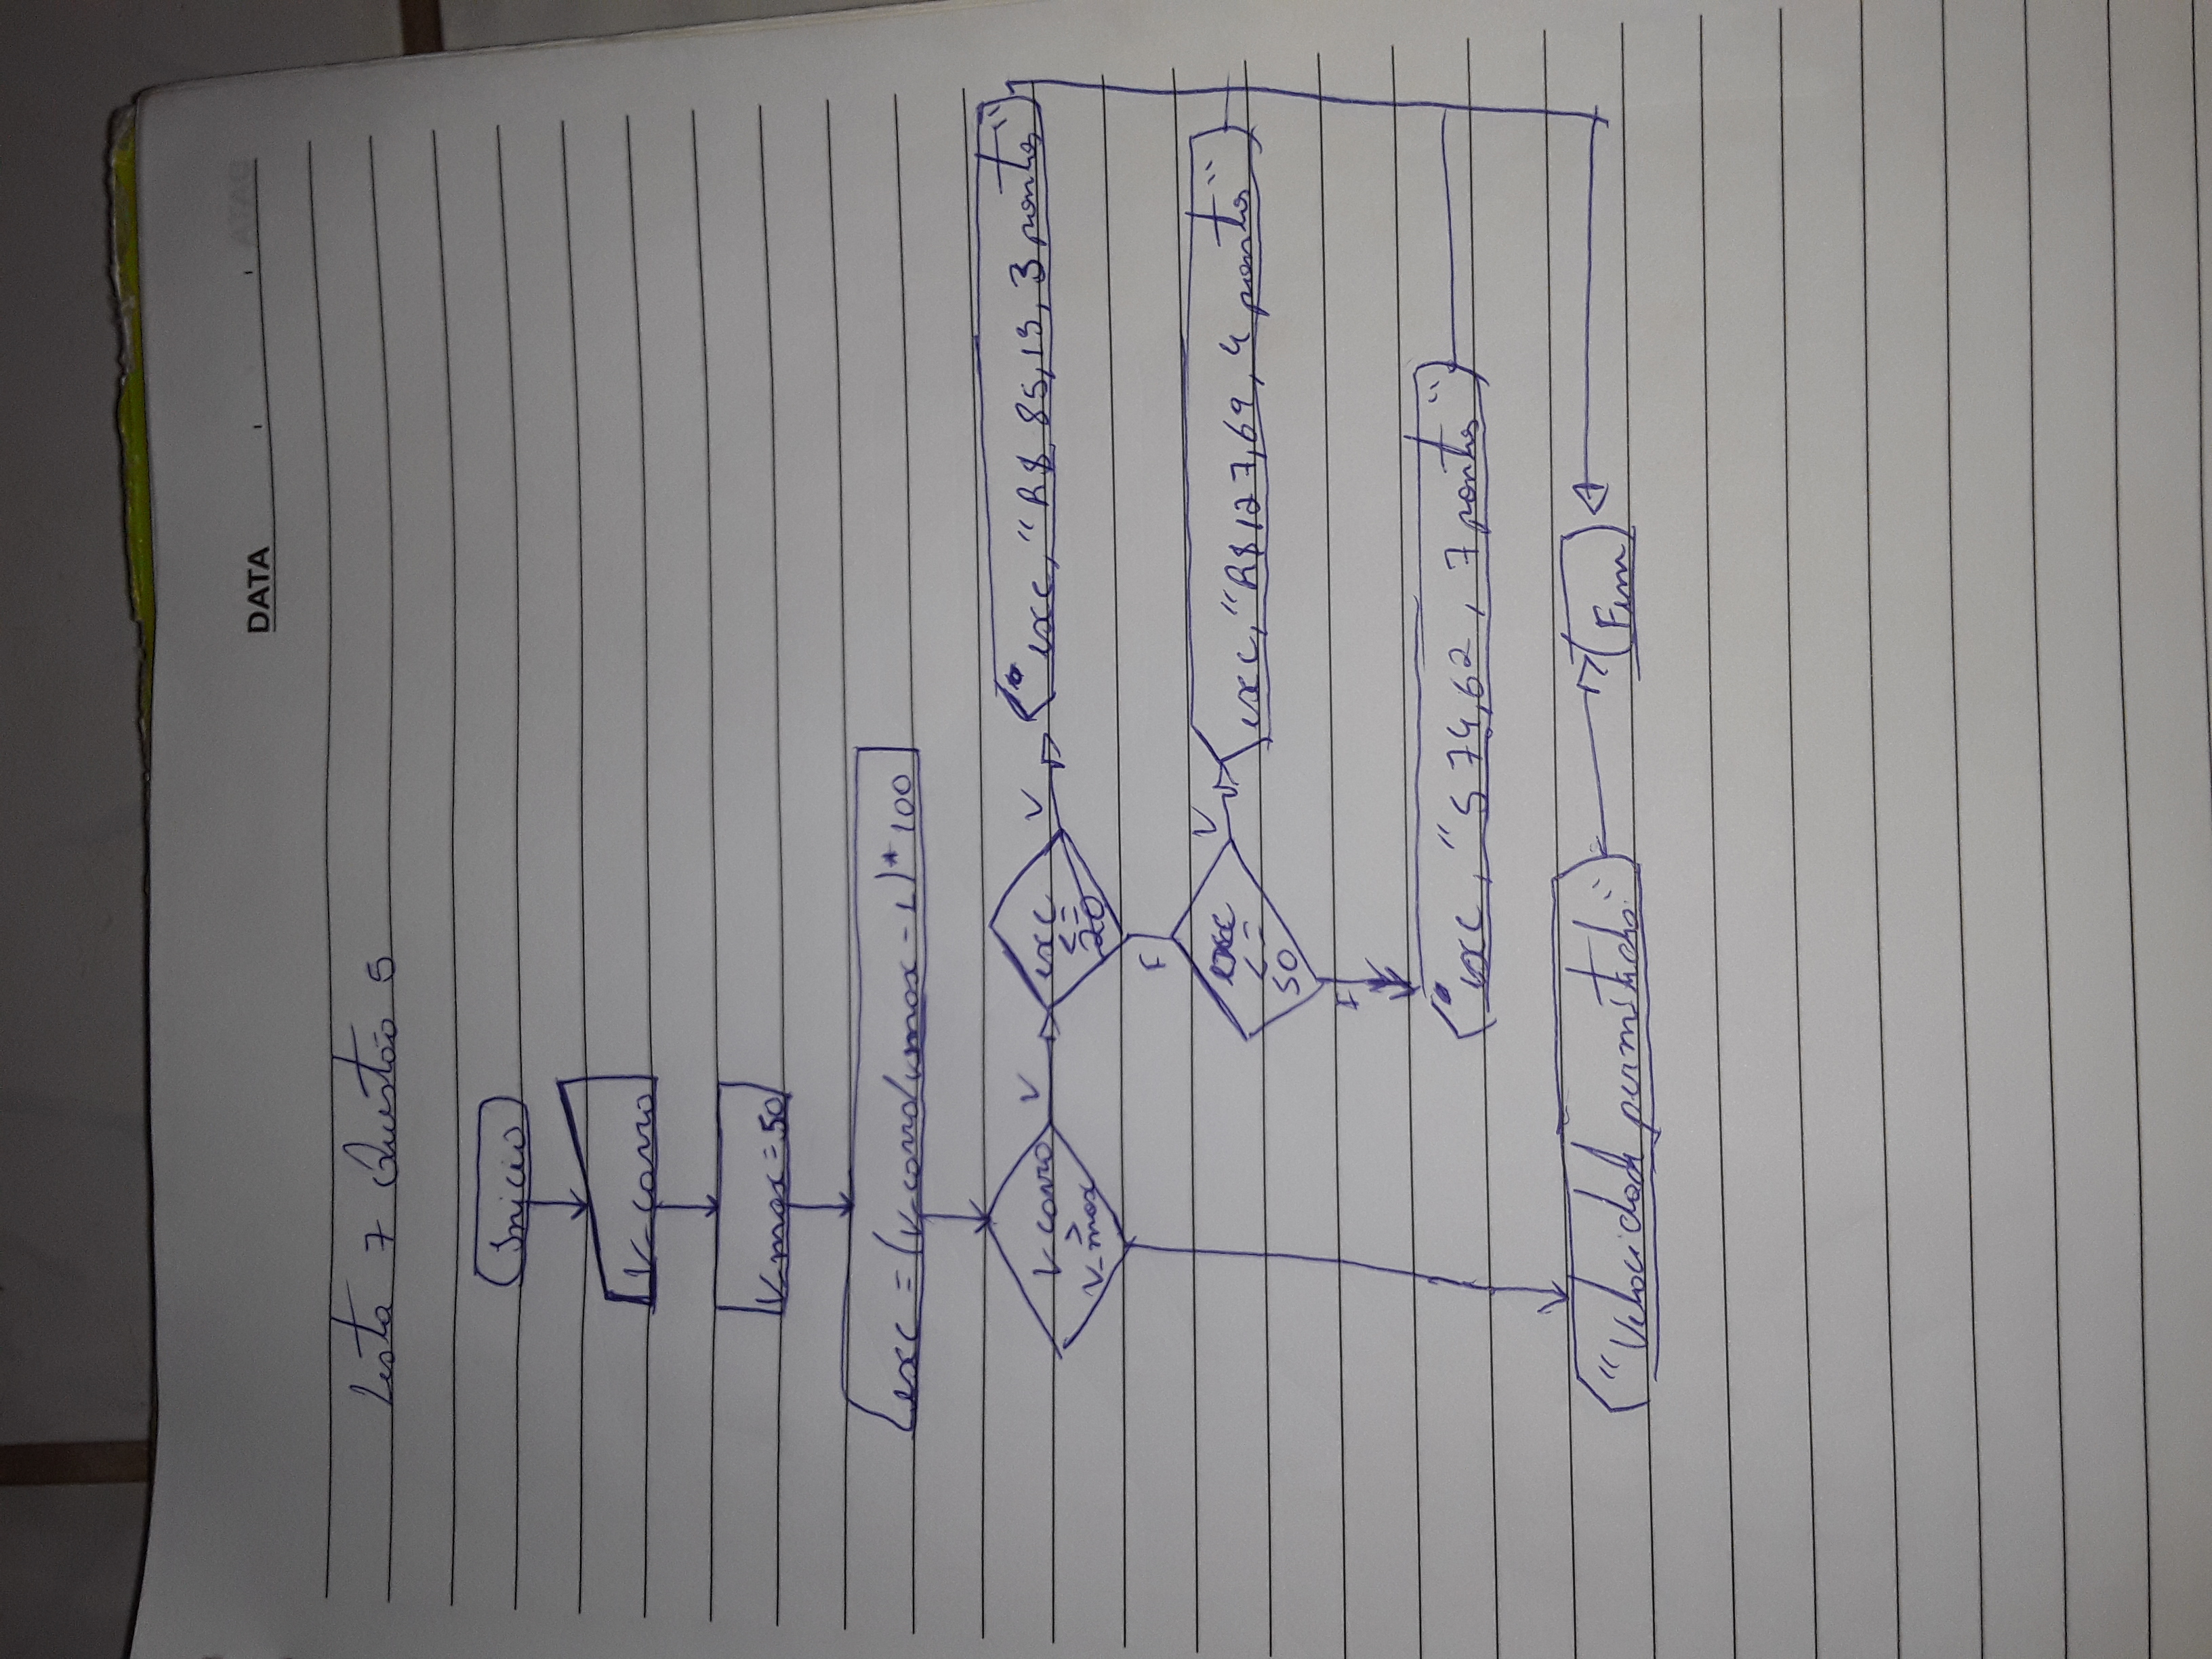 DATA
Lista 7 Questão 5
Início
V_carro
V_max = 50
exc = (v_carro/vmax - 1) * 100
V_carro
>
V_max
V
exc
<=
20
V
exc, "R$ 85,13, 3 pontos"
F
exc
<=
50
V
exc, "R$ 127,69, 4 pontos"
F
exc, "574,62, 7 pontos"
"Velocidade permitida"
Fim